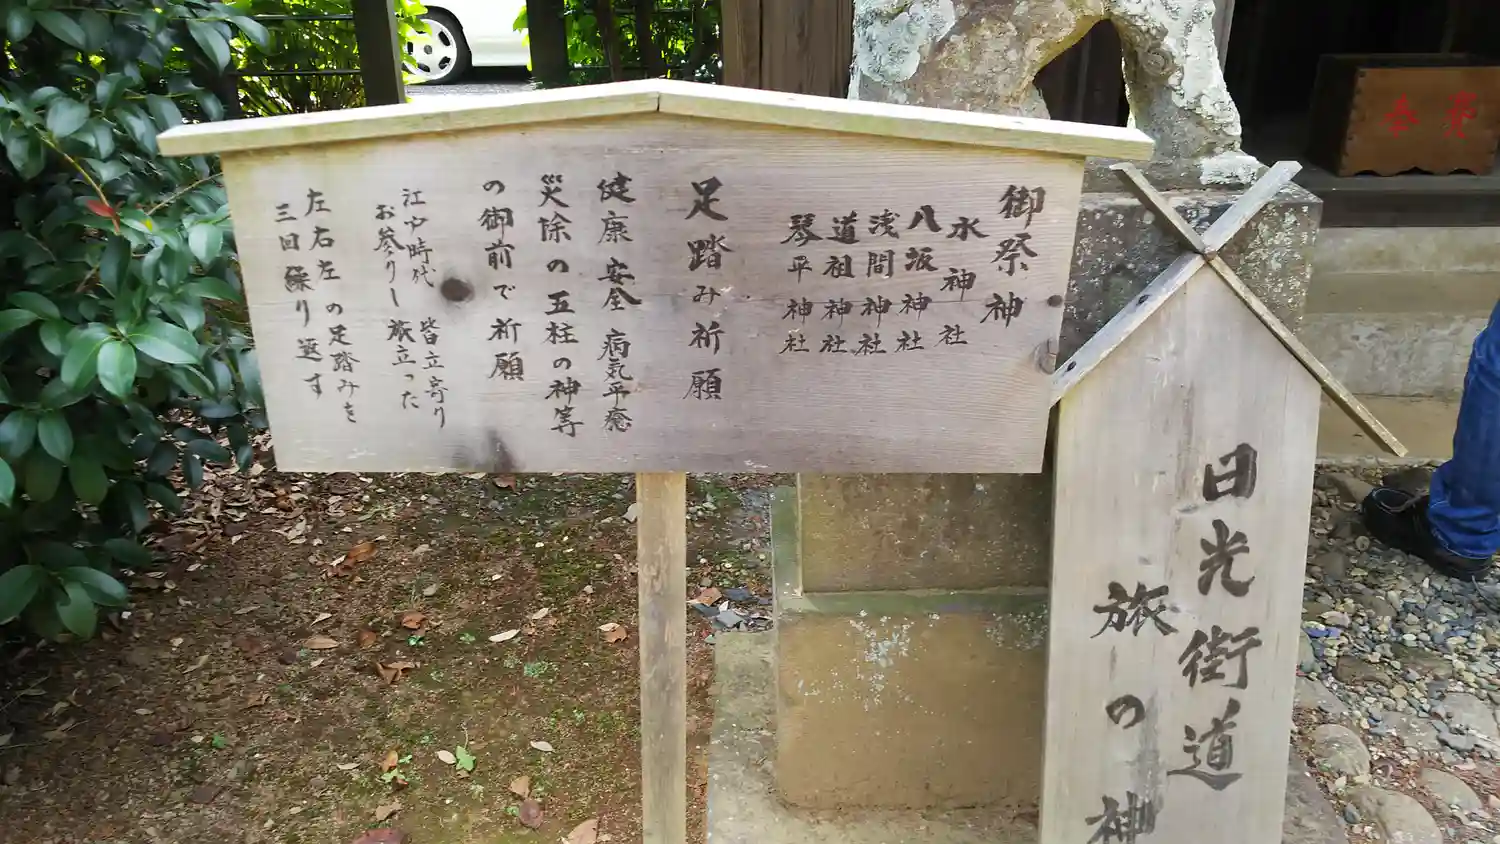 御祭神
水神社
八坂神社
浅間神社
道祖神社
琴平神社
足踏み祈願
健康安全 病気平癒
災除の五柱の神等
の御前で祈願
江戸時代 皆立寄り
お参りし旅立った
左右左 の足踏みを
三回繰り返す
日光街道
旅の神
奉